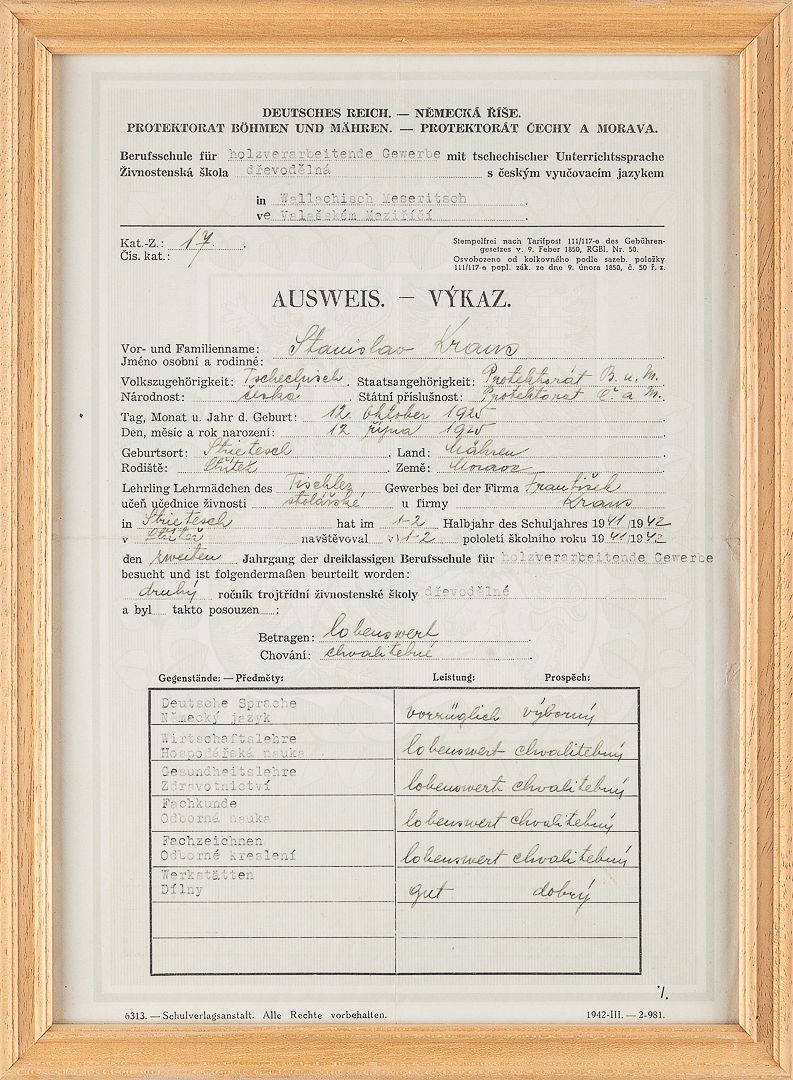 DEUTSCHES REICH. — NĚMECKÁ ŘÍŠE.
PROTEKTORAT BÖHMEN UND MÄHREN. — PROTEKTORÁT ČECHY A MORAVA.
Berufsschule für holzverarbeitende Gewerbe mit tschechischer Unterrichtssprache
Živnostenská škola dřevodělná s českým vyučovacím jazykem
in Wallachisch Meseritsch.
ve Valašském Meziříčí.
Kat.-Z.: 17.
Čís. kat.:
Stempelfrei nach Tarifpost 111/117-e des Gebühren-
gesetzes v. 9. Feber 1850, RGBl. Nr. 50.
Osvobozeno od kolkovného podle sazeb. položky
111/117-e popl. zák. ze dne 9. února 1850, č. 50 ř. z.
AUSWEIS. — VÝKAZ.
Vor- und Familienname: Stanislav Kraus
Jméno osobní a rodinné:
Volkszugehörigkeit: Tschechisch. Staatsangehörigkeit: Protektorát B. u. M.
Národnost: česká. Státní příslušnost: Protektorat Č a M.
Tag, Monat u. Jahr d. Geburt: 12. oktober 1925
Den, měsíc a rok narození: 12 října 1925
Geburtsort: Strietesch. Land: Mähren
Rodiště: Střítež. Země: Morava
Lehrling Lehrmädchen des Tischler Gewerbes bei der Firma František
učeň učednice živnosti stolářské u firmy Kraus
in Strietesch hat im 1-2 Halbjahr des Schuljahres 1941/1942
v Střítež navštěvoval v 1-2 pololetí školního roku 1941/1942
den zweiten Jahrgang der dreiklassigen Berufsschule für holzverarbeitende Gewerbe
besucht und ist folgendermaßen beurteilt worden:
druhý ročník trojtřídní živnostenské školy dřevodělné
a byl takto posouzen :
Betragen: lobenswert
Chování: chvalitebné.
Gegenstände: — Předměty: Leistung: Prospěch:
Deutsche Sprache
Německý jazyk vorzüglich výborný
Wirtschaftslehre
Hospodářská nauka lobenswert chvalitebný
Gesundheitslehre
Zdravotnictví lobenswert chvalitebný
Fachkunde
Odborná nauka lobenswert chvalitebný
Fachzeichnen
Odborné kreslení lobenswert chvalitebný
Werkstätten
Dílny gut dobrý
6313. — Schulverlagsanstalt. Alle Rechte vorbehalten. 1942-III. — 2-981.